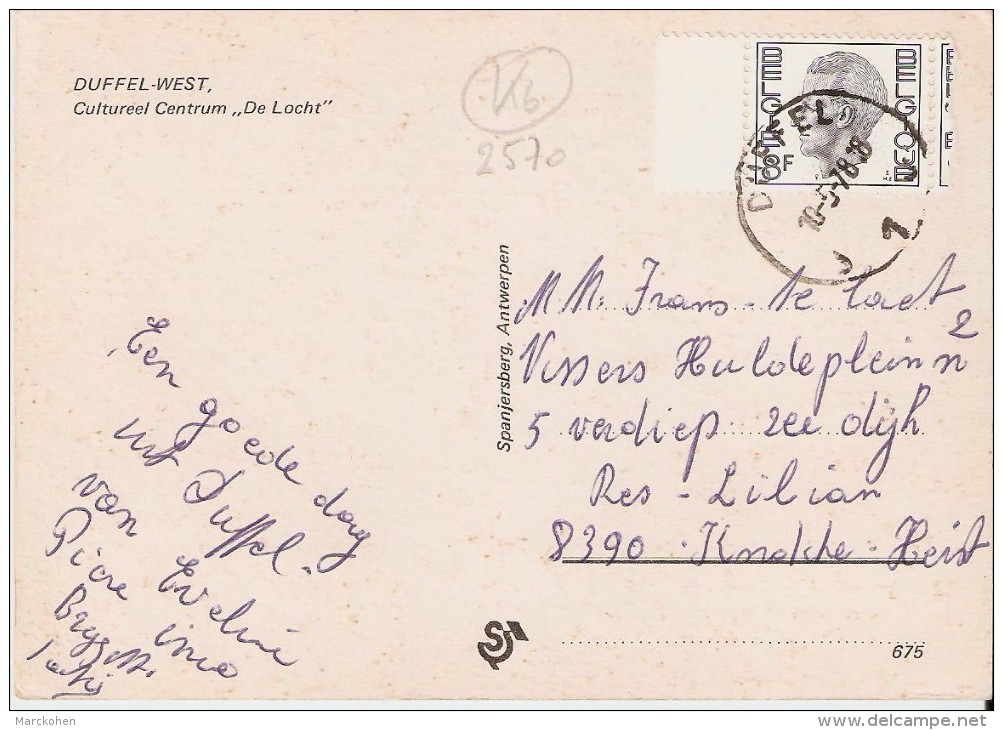 DUFFEL-WEST,
Cultureel Centrum „De Locht”
2570
BELGIE
BELGIQUE
8F
DUFFEL
10-5-78 18
Spanjersberg, Antwerpen
M M. Frans - te laet
Vissers Huldeplein n 2
5 verdiep zee dijk
Res - Lilian
8390 . Knokke - Heist
Een goede dag
uit Duffel.
van Eveline
Piere
675
Marckohen
www.delcampe.net